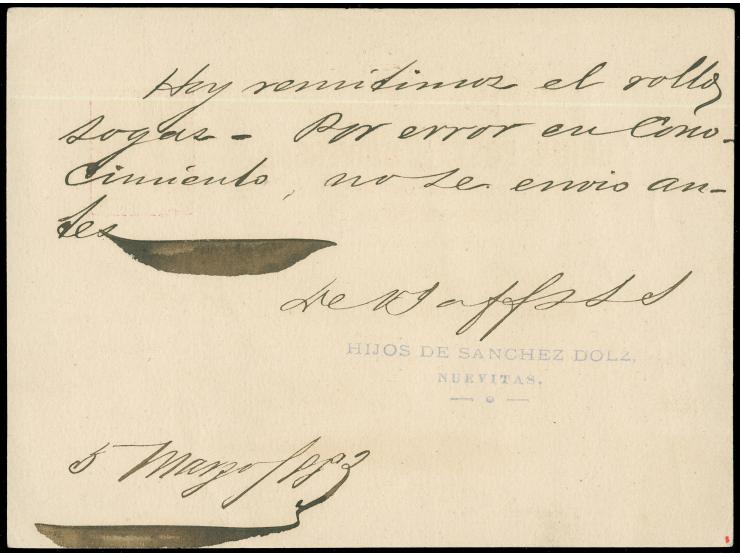 Hoy remitimos el rollo
sogas - Por error en Cono-
cimiento, no se envio an-
tes
De Vd affss
HIJOS DE SANCHEZ DOLZ,
NUEVITAS.
5 Marzo/